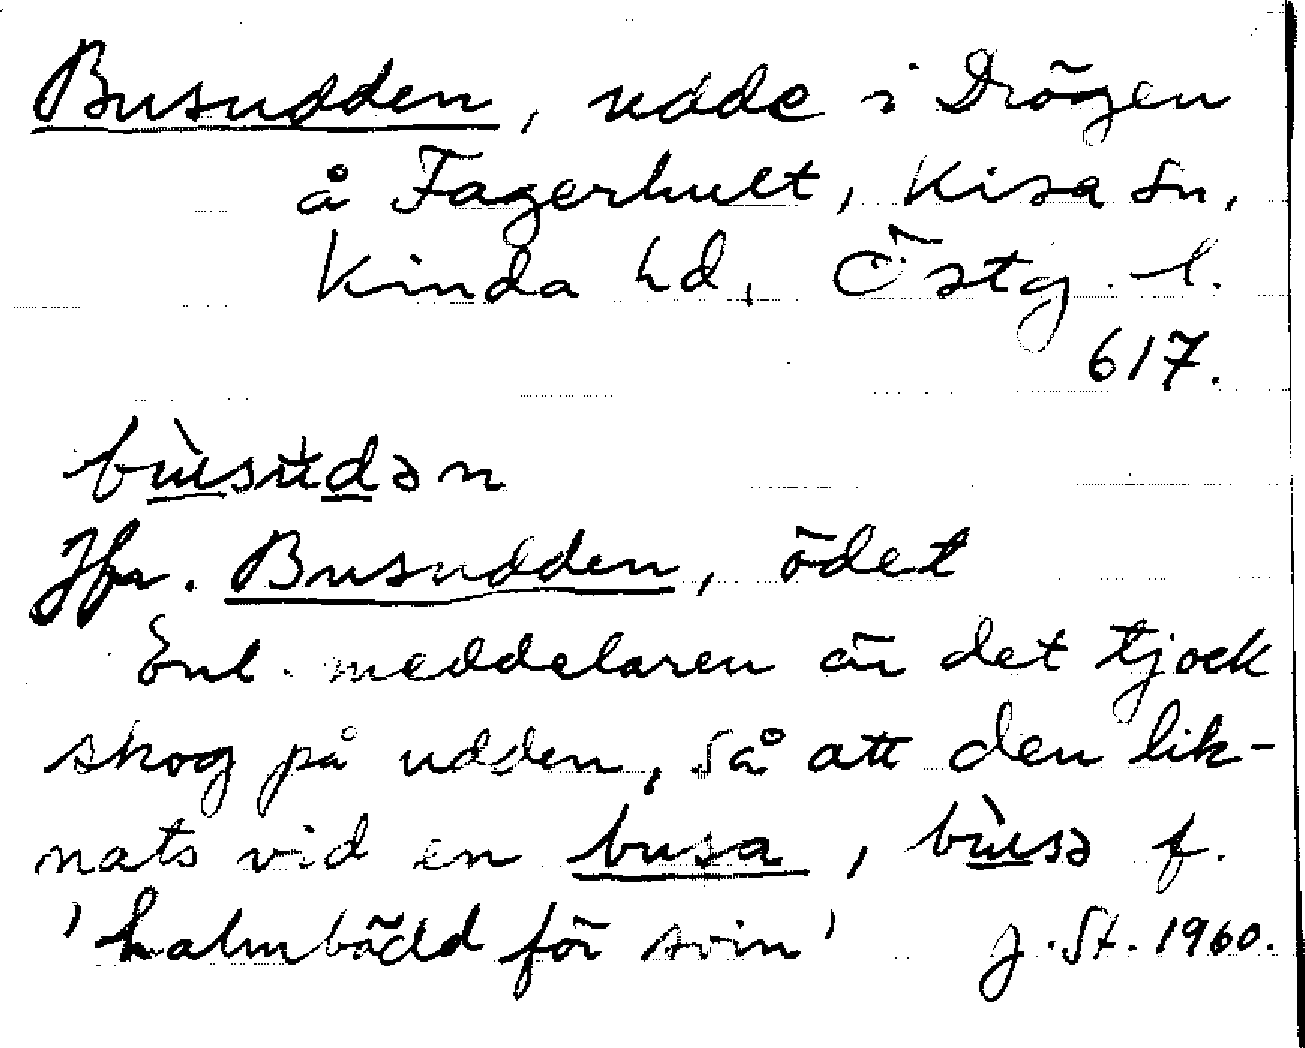 Busudden, udde i Drögen
å Fagerhult, Kisa sn,
Kinda hd, Östg. l.
617.
bùsu̇dən
Jfr. Busudden, ödet
Enl. meddelaren är det tjock
skog på udden, så att den lik-
nats vid en busa, bùsə f.
'halmbädd för svin' J. St. 1960.